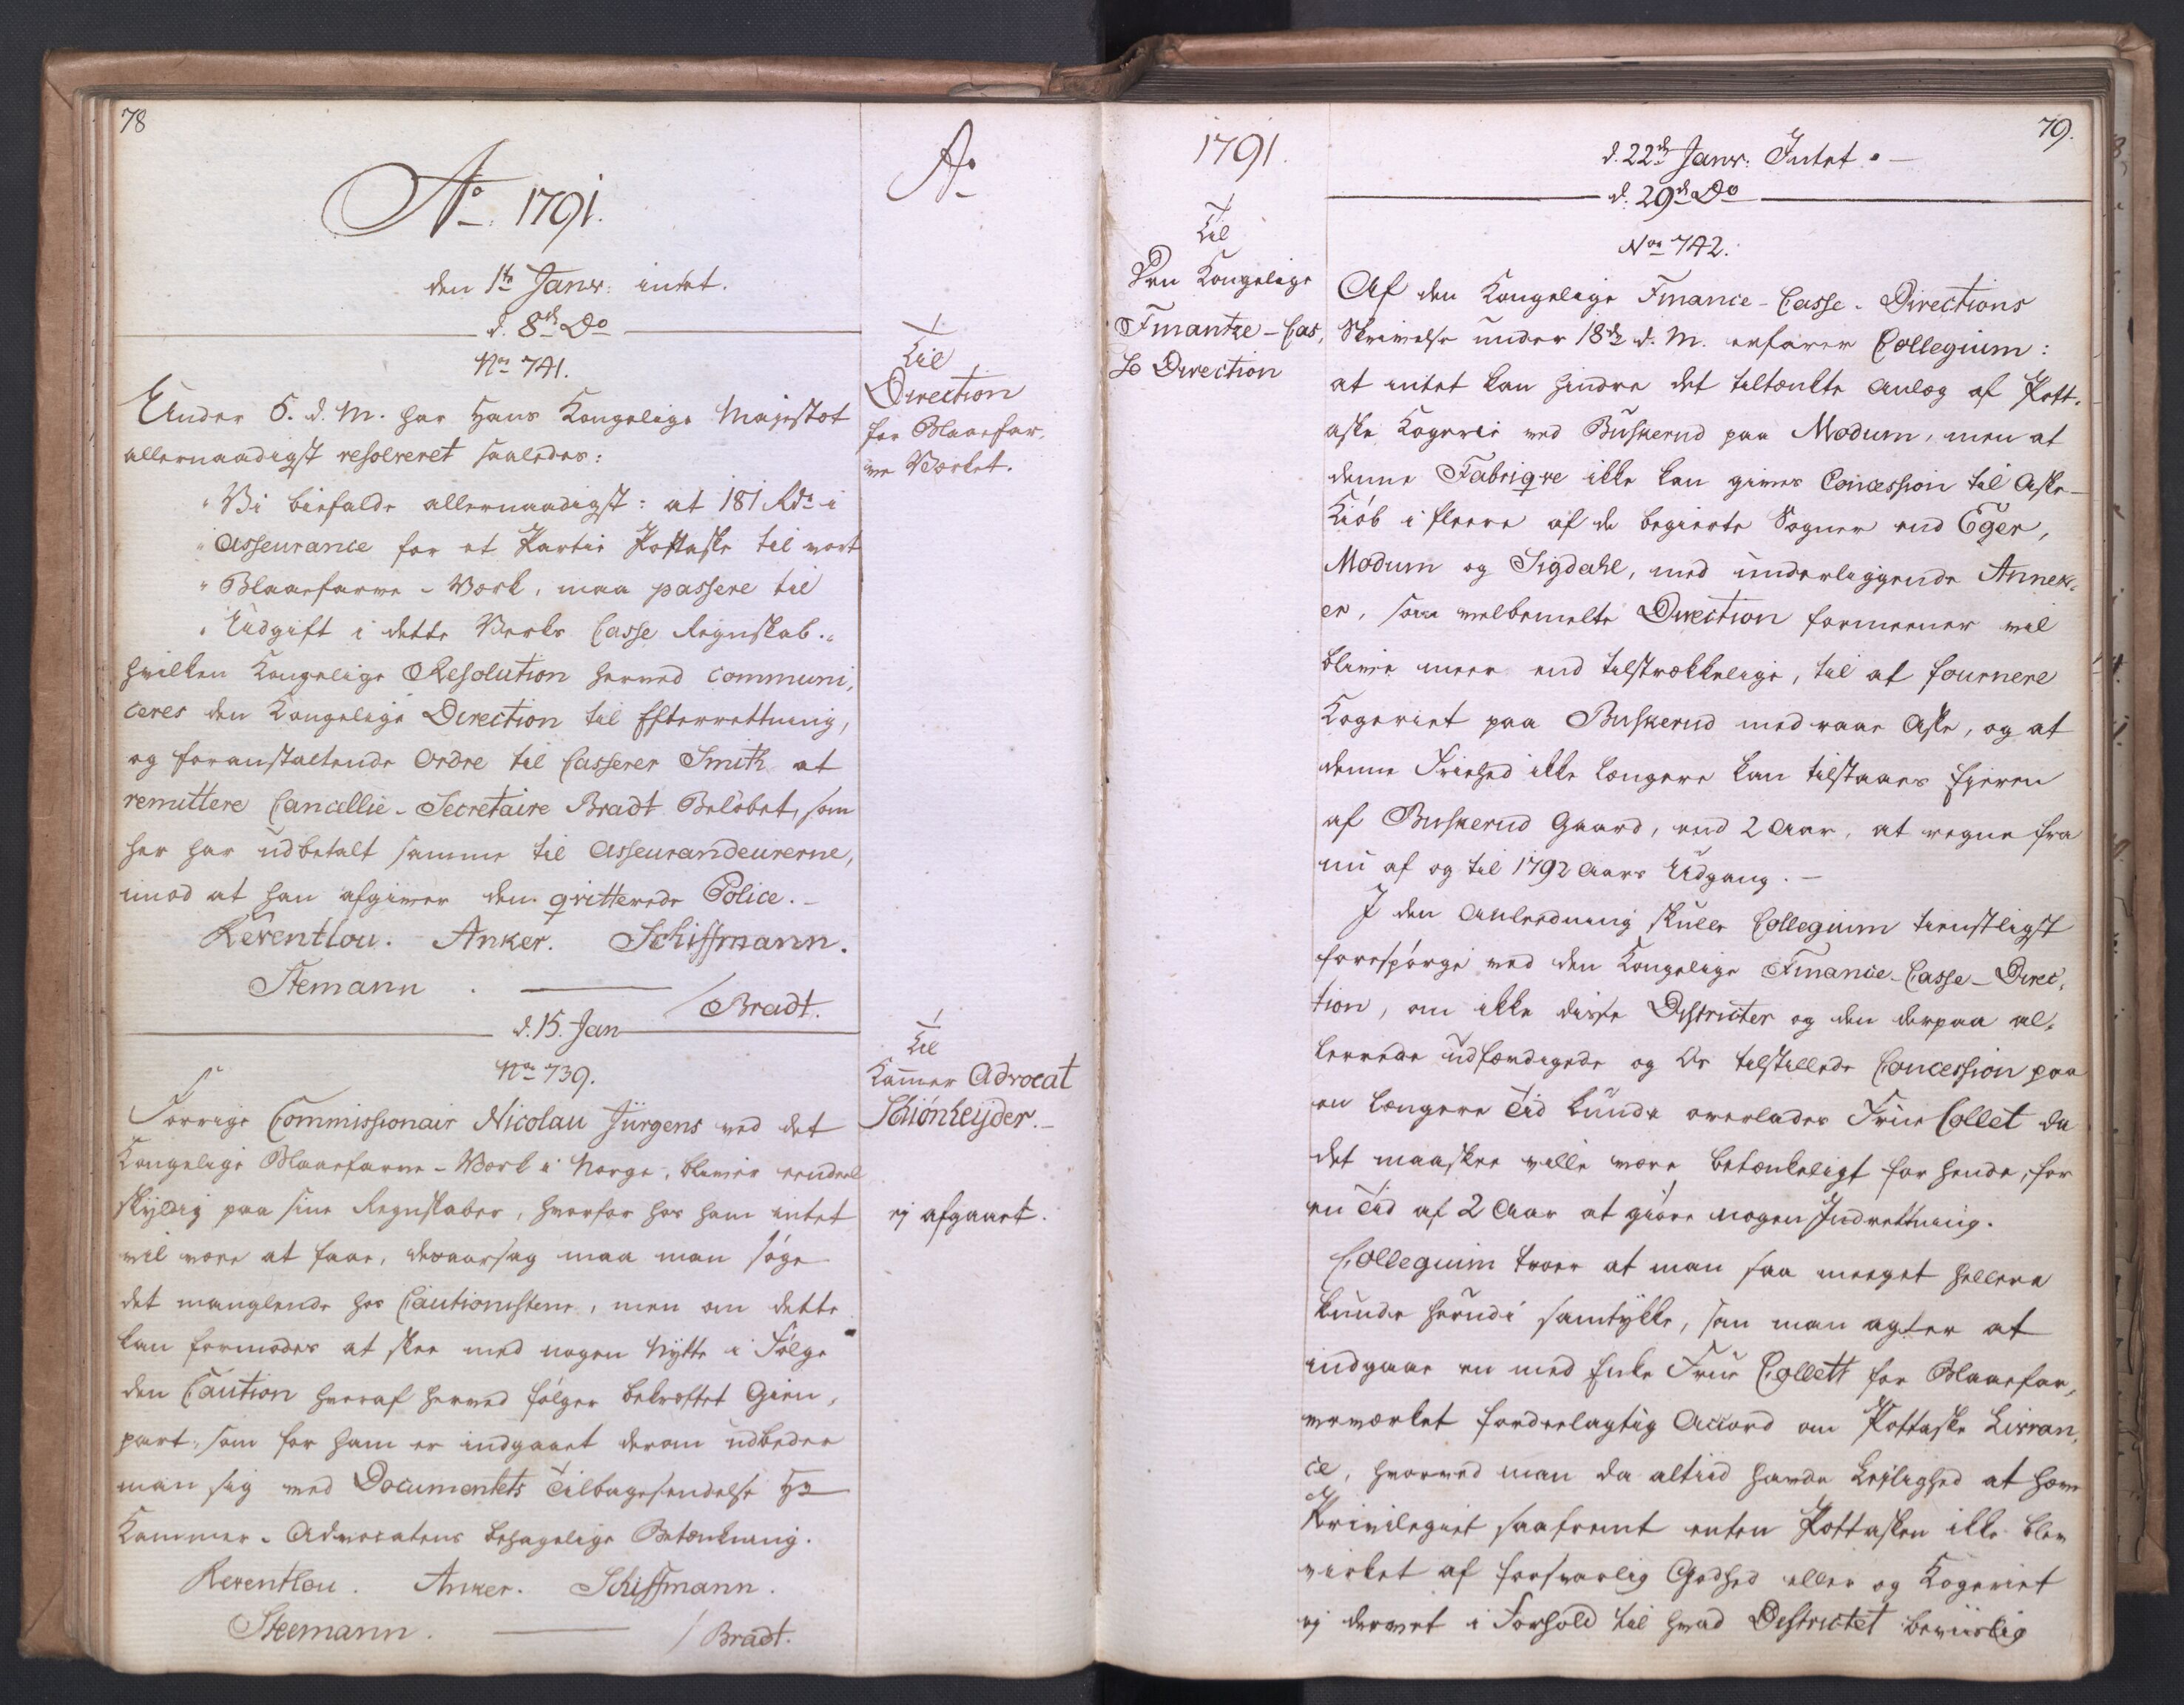 78
Ao 1791.
den 1te Janr. intet.
d. 8de Do
No 741.
Under 5. d. M. har Hans Kongelige Majestæt
allernaadigst resolveret saaledes:
"Vi bifalde allernaadigst: at 181 Rdr i
"Asseurance for et Partie Pottaske til vort
"Blaafarve-Værk, maa passere til
"Udgift i dette Verks Casse Regnskab."
hvilken Kongelige Resolution herved communi,
ceres den Kongelige Direction til Efterretning,
og foranstaltende Ordre til Casserer Smith at
remittere Cancellie-Secretaire Bradt Beløbet, som
her har udbetalt samme til Asseurandeurerne,
imod at han afgiver den qvitterede Police.-
Reventlou. Anker. Schiffmann.
Stemann. / Bradt.
d. 15. Jan
No 739.
Forrige Commissionair Nicolau Jürgens ved det
Kongelige Blaafarve-Værk i Norge, bliver endeel
skyldig paa sine Regnskaber, hvorfor hos ham intet
vil være at faae, desaarsag maa man søge
det manglende hos Cautionisterne, men om dette
kan formodes at skee med nogen Nytte i Følge
den Caution hvoraf herved følger bekræftet Gien,
part, som for ham er indgaaet derom udbeder
man sig med Documentets Tilbagesendelse Hr
Kammer-Advocatens behagelige Betænkning.
Reventlou. Anker. Schiffmann.
Steemann. / Bradt.
Ao
Til
Direction
for Blaafar,
ve Værket.
Til
Kammer Advocat
Schiönheyder.-
ej afgaaet.
1791.
Til
Den Kongelige
Finantze-Cas,
se Direction
79.
d. 22de Janr: Intet.-
d. 29de Do
No 742.
Af den Kongelige Finance-Casse-Directions
Skrivelse under 18de d. M. erfarer Collegium:
at intet kan hindre det tiltænkte Anlæg af Pott,
aske Kogerie ved Buskerud paa Modum, men at
denne Fabriqve ikke kan gives Concession til Aske-
Kiøb i fleere af de begierte Sogner end Eger,
Modum og Sigdahl, med underliggende Annex,
er, som velbemelte Direction formeener vil
blive meer end tilstrækkelige, til at fournere
Kogeriet paa Buskerud med raae Aske, og at
denne Friehed ikke længere kan tilstaaes Ejeren
af Buskerud Gaard, end 2 Aar, at regne fra
nu af og til 1792 Aars Udgang.-
I den Anledning skulle Collegium tienstligst
forespørge ved den Kongelige Finance-Casse-Direc,
tion, om ikke disse Districter og den derpaa al,
lerrede udfærdigede og Os tilstillede Concession paa
en længere Tid kunde overlades Frue Collet da
det maaskee ville være betænkeligt for hende, for
en Tid af 2 Aar at giøre nogen Indretning.
Collegium troer at man saa meeget hellere
kunde herudi samtykke, som man agter at
indgaae en med Enke Frue Collett for Blaafar,
veværket fordeelagtig Accord om Pottaske Livran,
ce, hvorved man da altiid havde Leilighed at hæve
Privilegiet saafremt enten Pottasken ikke blev
virket af forsvarlig Godhed eller og Kogeriet
ej drevet i Forhold til hvad Districtet beviislig